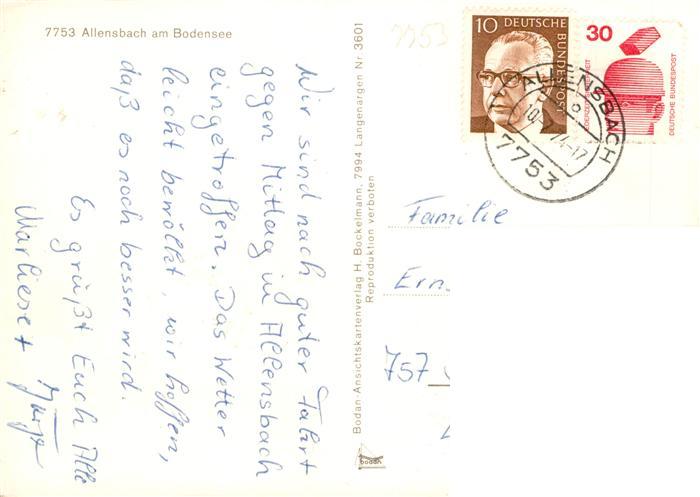 7753 Allensbach am Bodensee
Wir sind nach guter Fahrt
gegen Mittag in Allensbach
eingetroffen. Das Wetter
leicht bewölkt, wir hoffen,
daß es noch besser wird.
Es grüßt Euch Alle
Marliese +
Bodan-Ansichtskartenverlag H. Bockelmann, 7994 Langenargen Nr. 3601
Reproduktion verboten
bodan
7753
10
DEUTSCHE
BUNDESPOST
30
DEUTSCHE BUNDESPOST
ALLENSBACH
7753
Familie
Ern
757